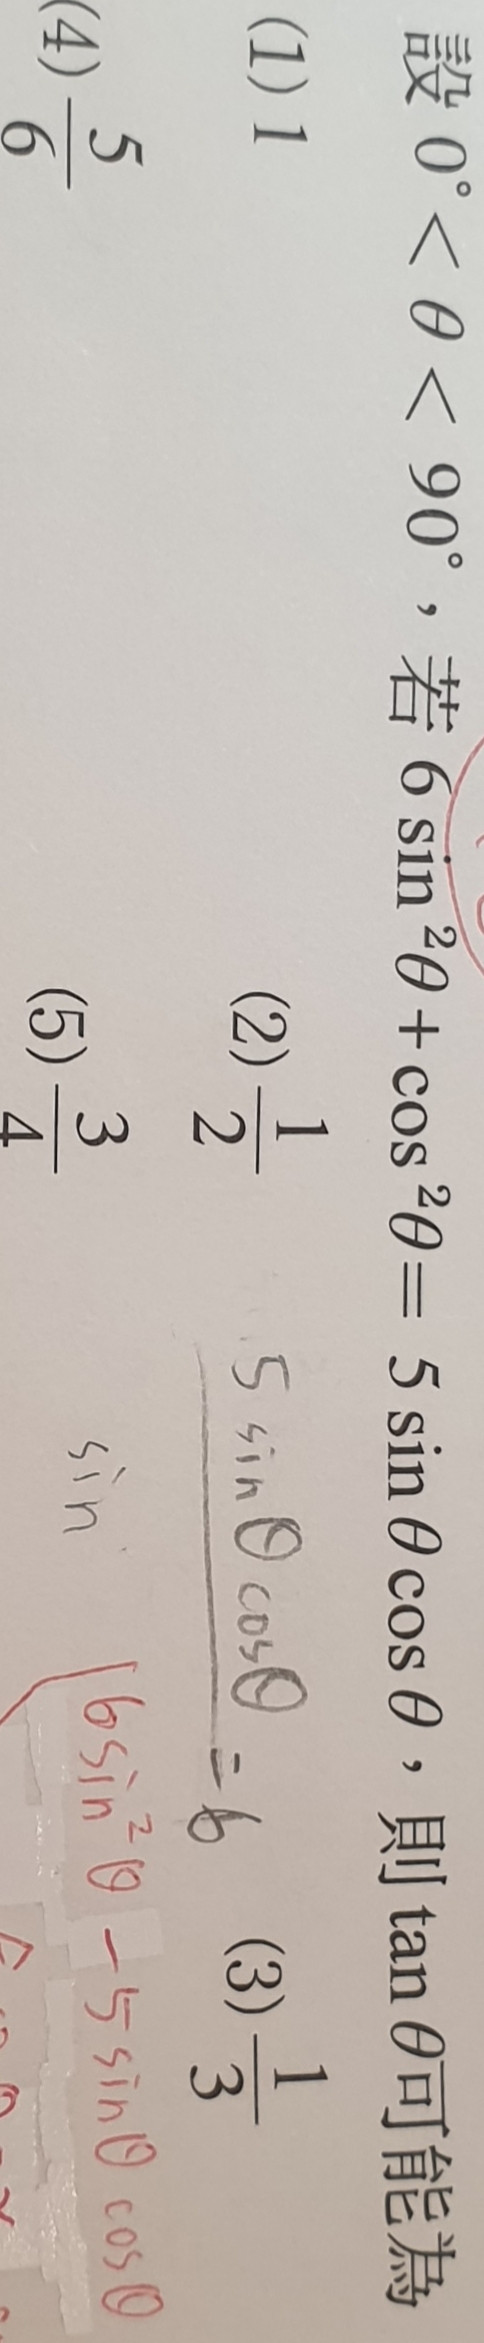 設 0° < θ < 90°，若 6 sin²θ + cos²θ = 5 sin θ cos θ，則 tan θ 可能為
(1) 1 (2) 1/2 (3) 1/3
5 sinθ cosθ = 6
(4) 5/6 (5) 3/4
sin
6sin²θ - 5 sinθ cosθ